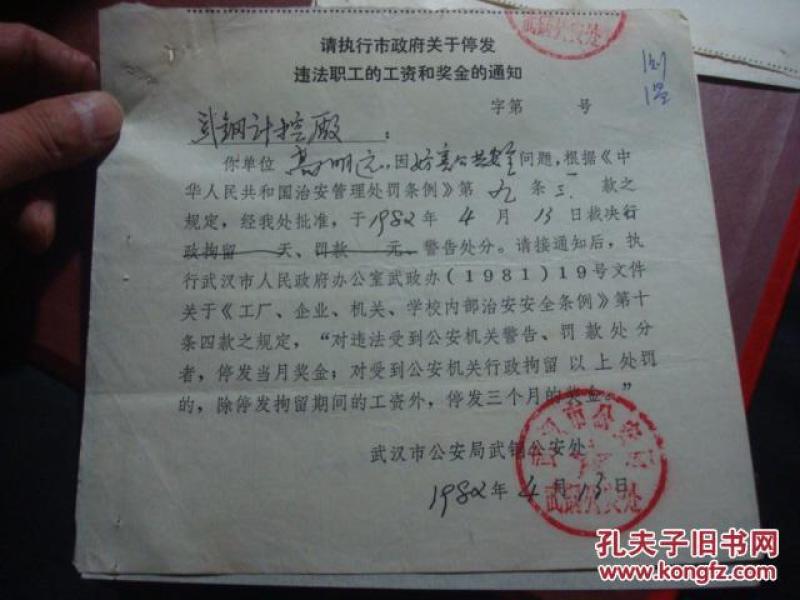 武钢公安处
请执行市政府关于停发
违法职工的工资和奖金的通知
字第 号
武钢计控厰：
你单位高明远，因妨害公共安全问题，根据《中
华人民共和国治安管理处罚条例》第 九 条 三 款之
规定，经我处批准，于1982年 4 月 13 日裁决行
政拘留 天、罚款 元、警告处分。请接通知后，执
行武汉市人民政府办公室武政办（1981）19号文件
关于《工厂、企业、机关、学校内部治安安全条例》第十
条四款之规定，“对违法受到公安机关警告、罚款处分
者，停发当月奖金；对受到公安机关行政拘留以上处罚
的，除停发拘留期间的工资外，停发三个月的奖金。”
武汉市公安局武钢公安处
1982年 4 月 13 日
武汉市公安局
武钢公安处
孔夫子旧书网
www.kongfz.com